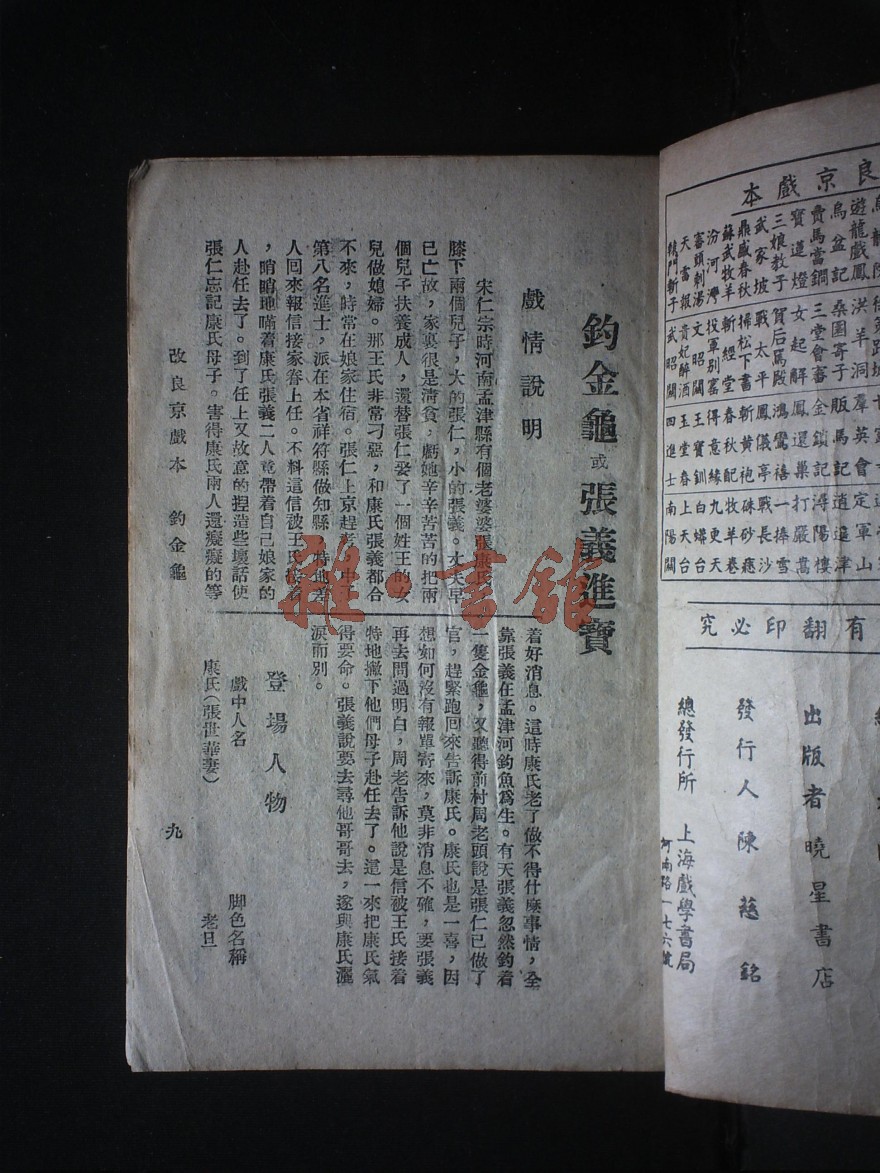 釣金龜或張義進寶
戲情說明
宋仁宗時河南孟津縣有個老婆婆張康氏
膝下兩個兒子，大的張仁，小的張義。丈夫早
已亡故，家裏很是清貧，虧她辛辛苦苦的把兩
個兒子扶養成人，還替張仁娶了一個姓王的女
兒做媳婦。那王氏非常刁惡，和康氏張義都合
不來，時常在娘家住宿。張仁上京趕考，中了
第八名進士，派在本省祥符縣做知縣，特地差
人回來報信接家眷上任。不料這信被王氏接着
，哨哨地瞞着康氏張義二人竟帶着自己娘家的
人赴任去了。到了任上又故意的捏造些壞話使
張仁忘記康氏母子。害得康氏兩人還癡癡的等
着好消息。這時康氏老了做不得什麼事情，全
靠張義在孟津河釣魚爲生。有天張義忽然釣着
一隻金龜，又聽得前村周老頭說是張仁已做了
官，趕緊跑回來告訴康氏。康氏也是一喜，因
想如何沒有報單寄來，莫非消息不確，要張義
再去問過明白，周老告訴他說是信被王氏接着
特地撇下他們母子赴任去了。這一來把康氏氣
得要命。張義說要去尋他哥哥去，遂與康氏灑
淚而別。
登場人物
戲中人名
脚色名稱
康氏（張世華妻）
老旦
改良京戲本 釣金龜
九
雜·書館
良京戲本
遊龍戲鳳 洪羊洞 羣英會 定軍山
烏盆記 桑園寄子 販馬記 逍遥津
賣馬當鐧 三堂會審 金鎖記 潯陽樓
寶蓮燈 女起解 鳳還巢 打嚴嵩
三娘教子 賀后罵殿 鴻鸞禧 一捧雪
武家坡 戰太平 鳳儀亭 戰長沙
鼎盛春秋 掃松下書 斬黄袍 硃砂痣
蘇武牧羊 斬經堂 春秋配 牧羊卷
汾河灣 投軍別窰 得意緣 九更天
審頭刺湯 文昭關 王寶釧 白蟒台
天雷報 貴妃醉酒 玉堂春 上天台
轅門斬子 武昭關 四進士 南陽關
有翻印必究
出版者 曉星書店
發行人 陳慈銘
總發行所 上海戲學書局
河南路一七六號